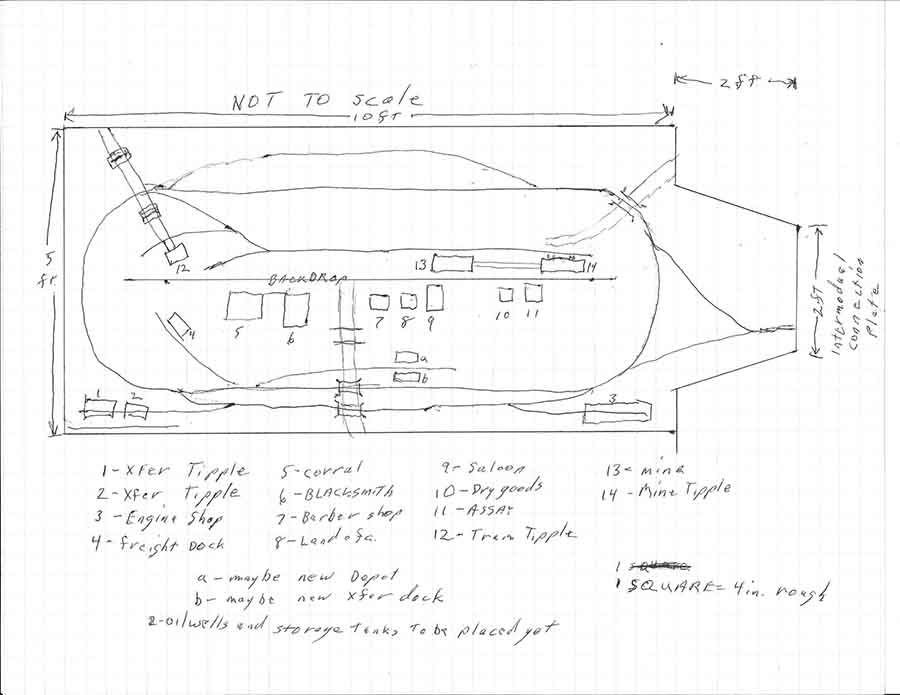 2ft
NOT TO scale
10ft
5 ft
12
BACKDROP
13
14
5
6
7
8
9
10
11
4
a
b
1
2
3
2ft
intermodel connection plate
1-Xfer Tipple
2-Xfer Tipple
3-Engine Shop
4-freight Dock
5-corral
6-BLACKSMITH
7-Barber shop
8-Land ofc.
9-Saloon
10-Dry goods
11-ASSAY
12-Tram Tipple
13-mine
14-Mine Tipple
a-maybe new Depot
b-maybe new Xfer dock
2-oilwells and storage Tanks To be placed yet
1
1 SQUARE= 4in. rough